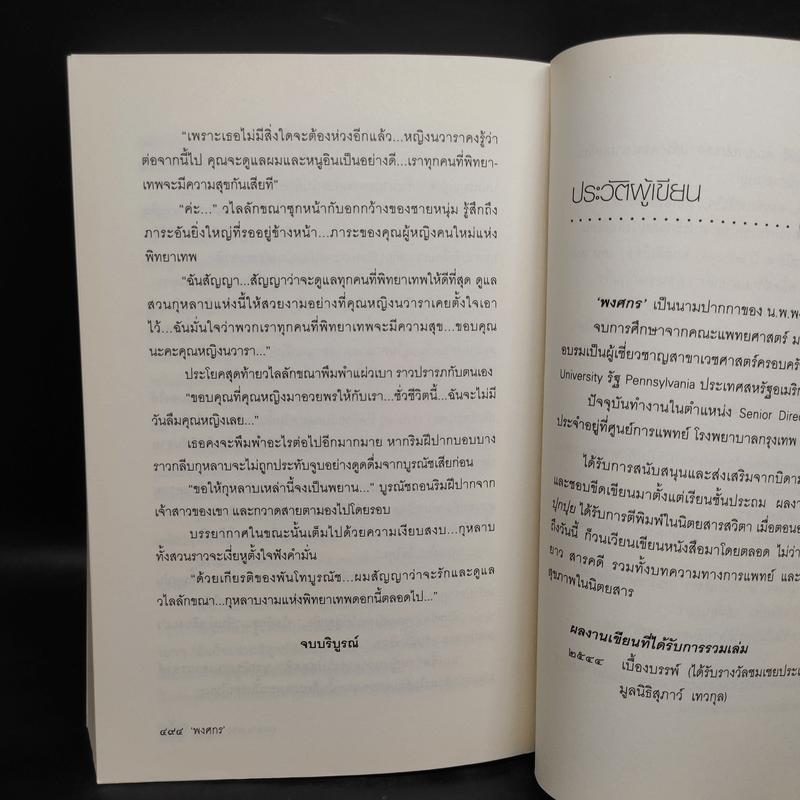 “เพราะเธอไม่มีสิ่งใดจะต้องห่วงอีกแล้ว...หญิงนวาราคงรู้ว่า
ต่อจากนี้ไป คุณจะดูแลผมและหนูอินเป็นอย่างดี...เราทุกคนที่พิทยา-
เทพจะมีความสุขกันเสียที”
“ค่ะ...” วไลลักขณาซุกหน้ากับอกกว้างของชายหนุ่ม รู้สึกถึง
ภาระอันยิ่งใหญ่ที่รออยู่ข้างหน้า...ภาระของคุณผู้หญิงคนใหม่แห่ง
พิทยาเทพ
“ฉันสัญญา...สัญญาว่าจะดูแลทุกคนที่พิทยาเทพให้ดีที่สุด ดูแล
สวนกุหลาบแห่งนี้ให้สวยงามอย่างที่คุณหญิงนวาราเคยตั้งใจเอา
ไว้...ฉันมั่นใจว่าพวกเราทุกคนที่พิทยาเทพจะมีความสุข...ขอบคุณ
นะคะคุณหญิงนวารา...”
ประโยคสุดท้ายวไลลักขณาพึมพำแผ่วเบา ราวปรารภกับตนเอง
“ขอบคุณที่คุณหญิงมาอวยพรให้กับเรา...ชั่วชีวิตนี้...ฉันจะไม่มี
วันลืมคุณหญิงเลย...”
เธอคงจะพึมพำอะไรต่อไปอีกมากมาย หากริมฝีปากบอบบาง
ราวกลีบกุหลาบจะไม่ถูกประทับจูบอย่างดูดดื่มจากบูรณัชเสียก่อน
“ขอให้กุหลาบเหล่านี้จงเป็นพยาน...” บูรณัชถอนริมฝีปากจาก
เจ้าสาวของเขา และกวาดสายตามองไปโดยรอบ
บรรยากาศในขณะนั้นเต็มไปด้วยความเงียบสงบ...กุหลาบ
ทั้งสวนราวจะเงี่ยหูตั้งใจฟังคำมั่น
“ด้วยเกียรติของพันโทบูรณัช...ผมสัญญาว่าจะรักและดูแล
วไลลักขณา...กุหลาบงามแห่งพิทยาเทพดอกนี้ตลอดไป...”
จบบริบูรณ์
๔๙๔ ‘พงศกร’
ประวัติผู้เขียน
‘พงศกร’ เป็นนามปากกาของ น.พ.พง
จบการศึกษาจากคณะแพทยศาสตร์ ม
อบรมเป็นผู้เชี่ยวชาญสาขาเวชศาสตร์ครอบครัว
University รัฐ Pennsylvania ประเทศสหรัฐอเมริก
ปัจจุบันทำงานในตำแหน่ง Senior Direc
ประจำอยู่ที่ศูนย์การแพทย์ โรงพยาบาลกรุงเทพ
ได้รับการสนับสนุนและส่งเสริมจากบิดาม
และชอบขีดเขียนมาตั้งแต่เรียนชั้นประถม ผลงา
ปุกปุย ได้รับการตีพิมพ์ในนิตยสารสวิตา เมื่อตอนอ
ถึงวันนี้ ก็วนเวียนเขียนหนังสือมาโดยตลอด ไม่ว่า
ยาว สารคดี รวมทั้งบทความทางการแพทย์ และ
สุขภาพในนิตยสาร
ผลงานเขียนที่ได้รับการรวมเล่ม
๒๕๔๔ เบื้องบรรพ์ (ได้รับรางวัลชมเชยประเ
มูลนิธิสุภาว์ เทวกุล)